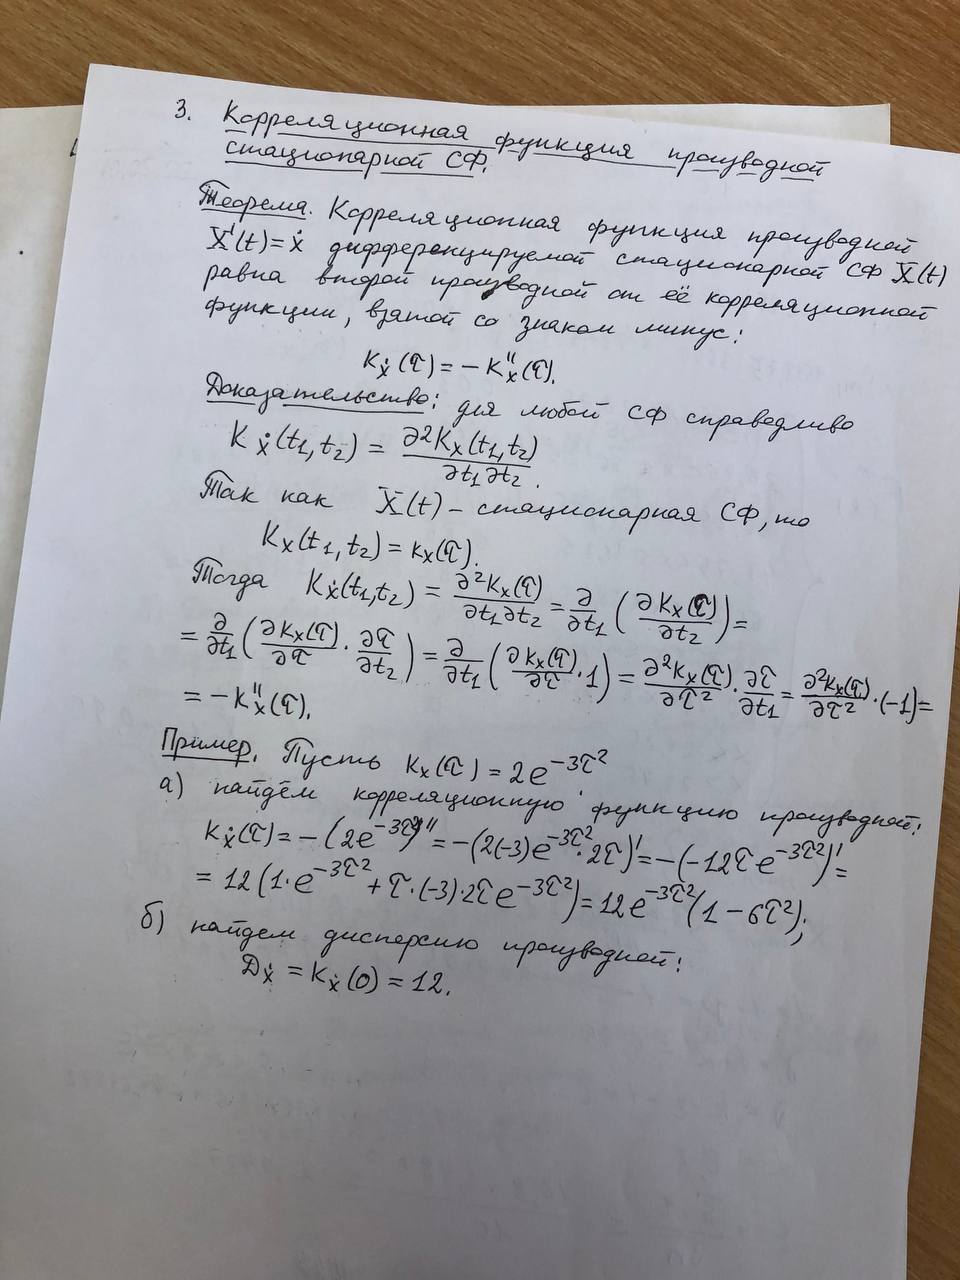 3. Корреляционная функция производной
стационарной СФ.
Теорема. Корреляционная функция производной
X'(t)=ẋ дифференцируемой стационарной СФ X(t)
равна второй производной от её корреляционной
функции, взятой со знаком минус:
kẋ(τ) = − k''ₓ(τ).
Доказательство: для любой СФ справедливо
Kẋ(t₁,t₂) = ∂²Kₓ(t₁,t₂)/∂t₁∂t₂.
Так как X(t) – стационарная СФ, то
Kₓ(t₁,t₂) = kₓ(τ).
Тогда Kẋ(t₁,t₂) = ∂²kₓ(τ)/∂t₁∂t₂ = ∂/∂t₁ (∂kₓ(τ)/∂t₂) =
= ∂/∂t₁ (∂kₓ(τ)/∂τ · ∂τ/∂t₂) = ∂/∂t₁ (∂kₓ(τ)/∂τ · 1) = ∂²kₓ(τ)/∂τ² · ∂τ/∂t₁ = ∂²kₓ(τ)/∂τ² · (−1) =
= − k''ₓ(τ).
Пример. Пусть kₓ(τ) = 2e^{−3τ²}.
а) найдём корреляционную функцию производной:
kẋ(τ) = −(2e^{−3τ²})'' = −(2(−3)e^{−3τ²}·2τ)' = −(−12τe^{−3τ²})' =
= 12(1·e^{−3τ²} + τ·(−3)·2τe^{−3τ²}) = 12e^{−3τ²}(1 − 6τ²);
б) найдем дисперсию производной:
Dẋ = kẋ(0) = 12.